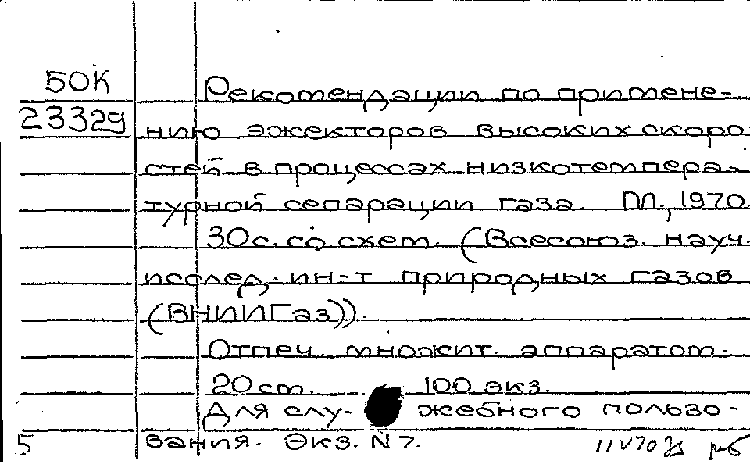 50К
23329
Рекомендации по примене-
нию эжекторов высоких скоро
стей в процессах низкотемпера-
турной сепарации газа. М., 1970.
30с. со схем. (Всесоюз. науч.
исслед. ин-т природных газов
(ВНИИГаз)).
Отпеч. множит. аппаратом.
20 см. 100 экз.
Для слу- жебного пользо-
вания. Экз. N 7.
5
11 V 70